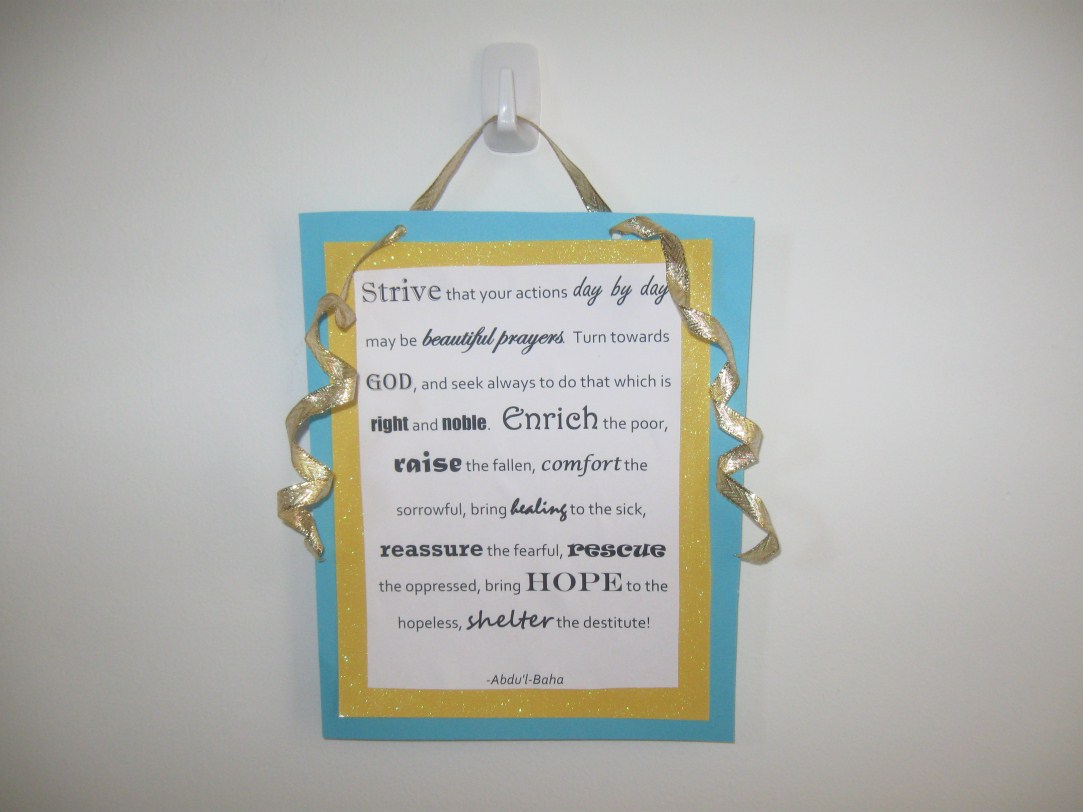 Strive that your actions day by day
may be beautiful prayers. Turn towards
GOD, and seek always to do that which is
right and noble. Enrich the poor,
raise the fallen, comfort the
sorrowful, bring healing to the sick,
reassure the fearful, rescue
the oppressed, bring HOPE to the
hopeless, shelter the destitute!
-Abdu'l-Baha